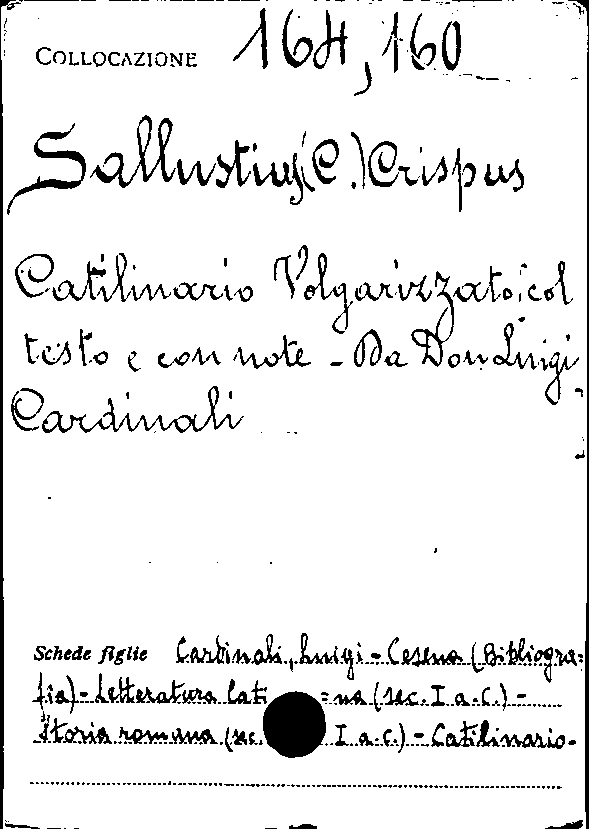 COLLOCAZIONE 164,160
Sallustius (C.) Crispus
Catilinario Volgarizzato, col
testo e con note - Da Don Luigi
Cardinali
Schede figlie Cardinali, Luigi - Cesena (Bibliogra=
fia) - Letteratura lati=na (sec. I a.C.) -
Storia romana (sec. I a.C.) - Catilinario -